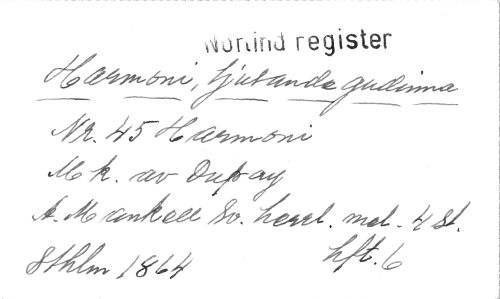 Norlind register
Harmoni, ljutande gudinna
Nr. 45 Harmoni
Mk. av Dupuy
A. Mankell Sv. harl. mel. 4 st.
Sthlm 1864 hft. 6